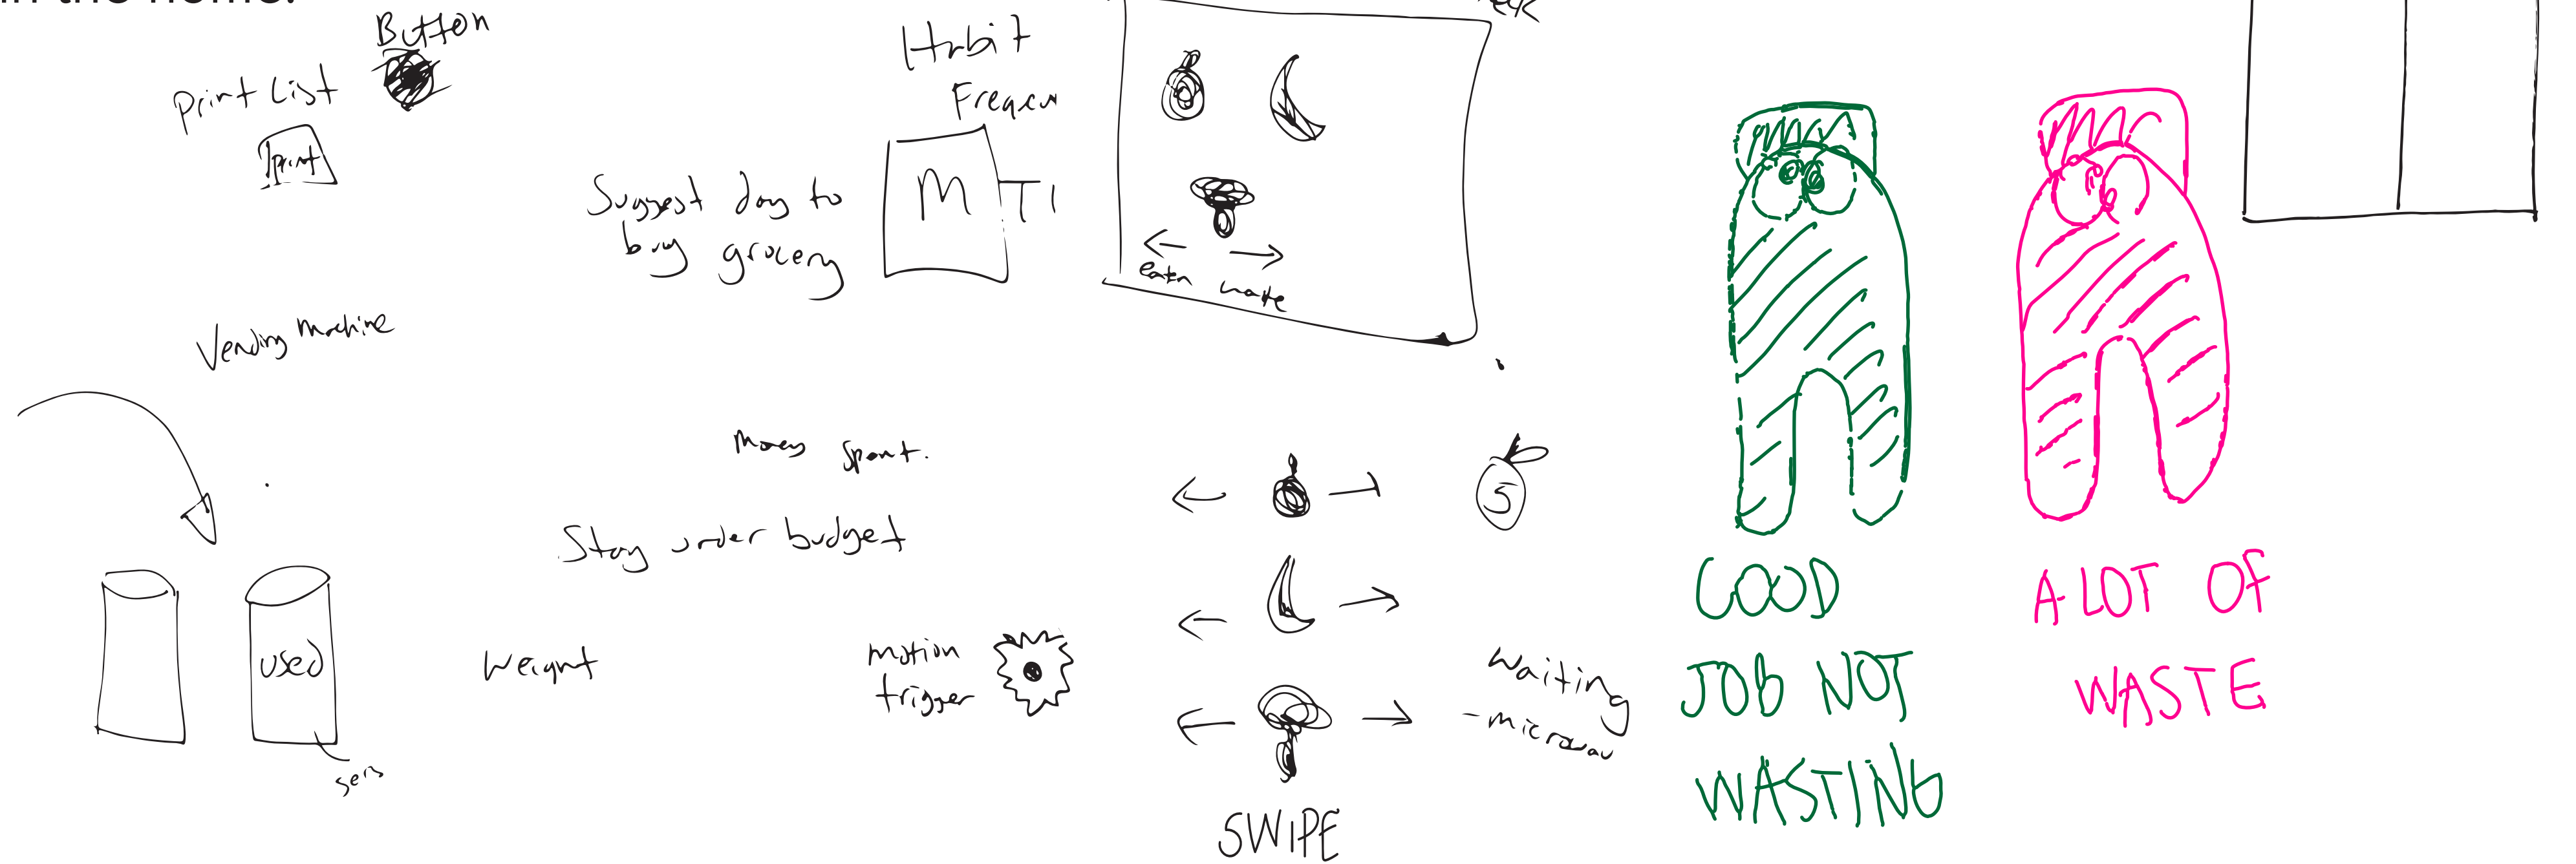 in the home.
Button
Print List
print
Habit
Frequen
Suggest day to
buy grocery
M T
eatn waste
Vending Machine
Money Spent.
Stay under budget
used
sens
Weight
motion
trigger
5
Waiting
-microwav
SWIPE
GOOD
JOB NOT
WASTING
A LOT OF
WASTE